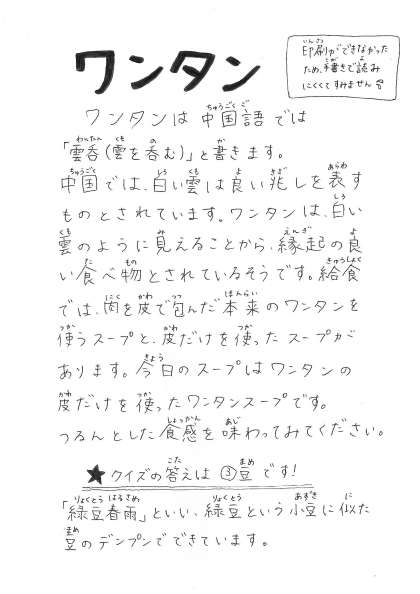 ワンタン
印刷ができなかった
ため、手書きで読み
にくくてすみません
ワンタンは中国語では
「雲呑(雲を呑む)」と書きます。
中国では、白い雲は良い兆しを表す
ものとされています。ワンタンは、白い
雲のように見えることから、縁起の良
い食べ物とされているそうです。給食
では、肉を皮で包んだ本来のワンタンを
使うスープと、皮だけを使ったスープが
あります。今日のスープはワンタンの
皮だけを使ったワンタンスープです。
つるんとした食感を味わってみてください。
★クイズの答えは③豆です!
「緑豆春雨」といい、緑豆という小豆に似た
豆のデンプンでできています。